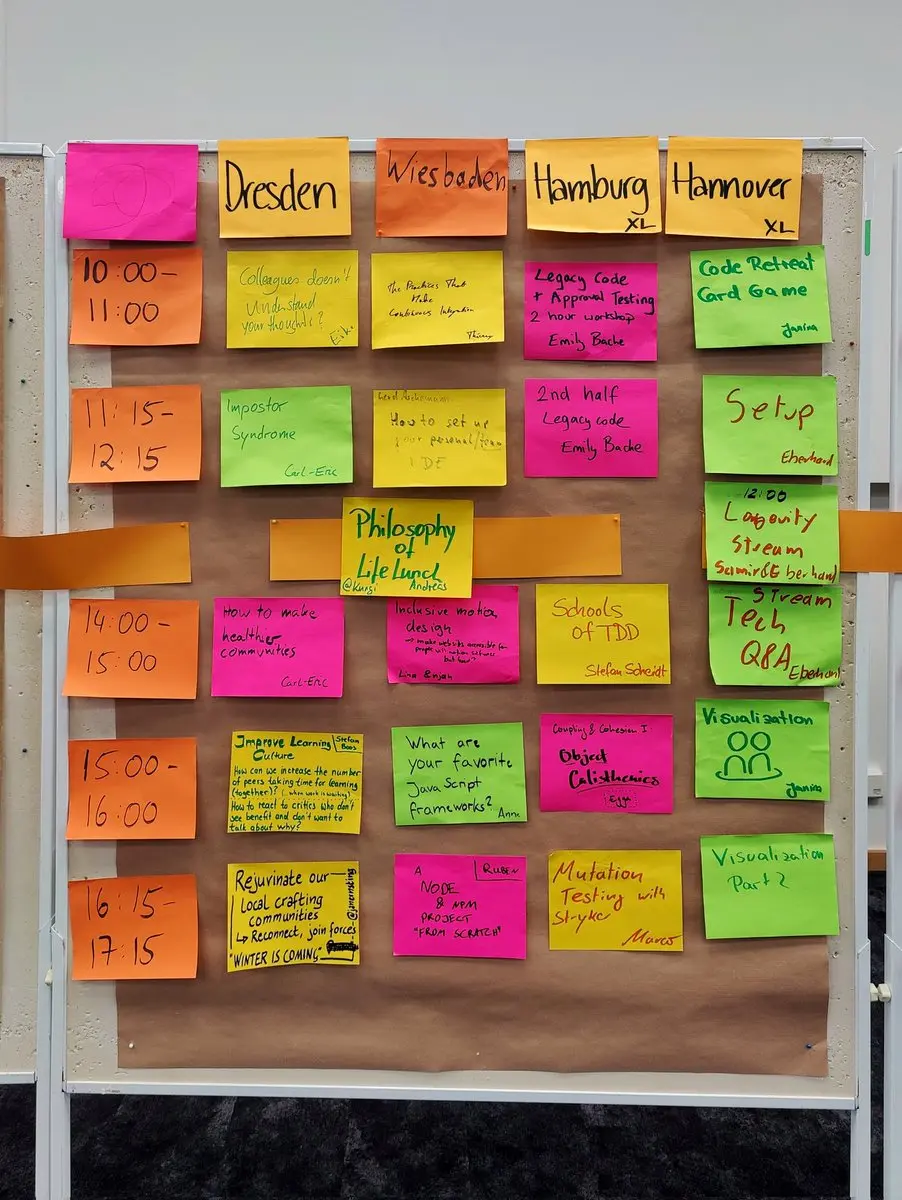 Dresden
Wiesbaden
Hamburg
XL
Hannover
XL
10:00-
11:00
Colleagues doesn't
Understand
your thoughts?
Eike
The Practices That
Make
Continuous Integration
Thierry
Legacy Code
+ Approval Testing
2 hour workshop
Emily Bache
Code Retreat
Card Game
Janina
11:15-
12:15
Impostor
Syndrome
Carl-Eric
How to set up
your personal/team
IDE
2nd half
Legacy code
Emily Bache
Setup
Eberhard
Philosophy
of
Life Lunch
Andreas
12:00
Longovity
Stream
Samir & Eberhard
14:00-
15:00
How to make
healthier
communities
Carl-Eric
Inclusive motion
design
→ make websites accessible for
but how?
Schools
of TDD
Stefan Scheidt
Stream
Tech
Q&A
Eberhard
15:00-
16:00
Improve Learning
Culture
Stefan
Boos
How can we increase the number
of peers taking time for learning
(together)? (when work is waiting)
How to react to critics who don't
see benefit and don't want to
talk about why?
What are
your favorite
Java Script
frameworks?
Anne
Coupling & Cohesion I:
Object
Calisthenics
Egga
Visualization
Janina
16:15-
17:15
Rejuvinate our
Local crafting
communities
↳ Reconnect, join forces
"WINTER IS COMING"
A
RUBEN
NODE
& NPM
PROJECT
"FROM SCRATCH"
Mutation
Testing with
Stryker
Marco
Visualization
Part 2